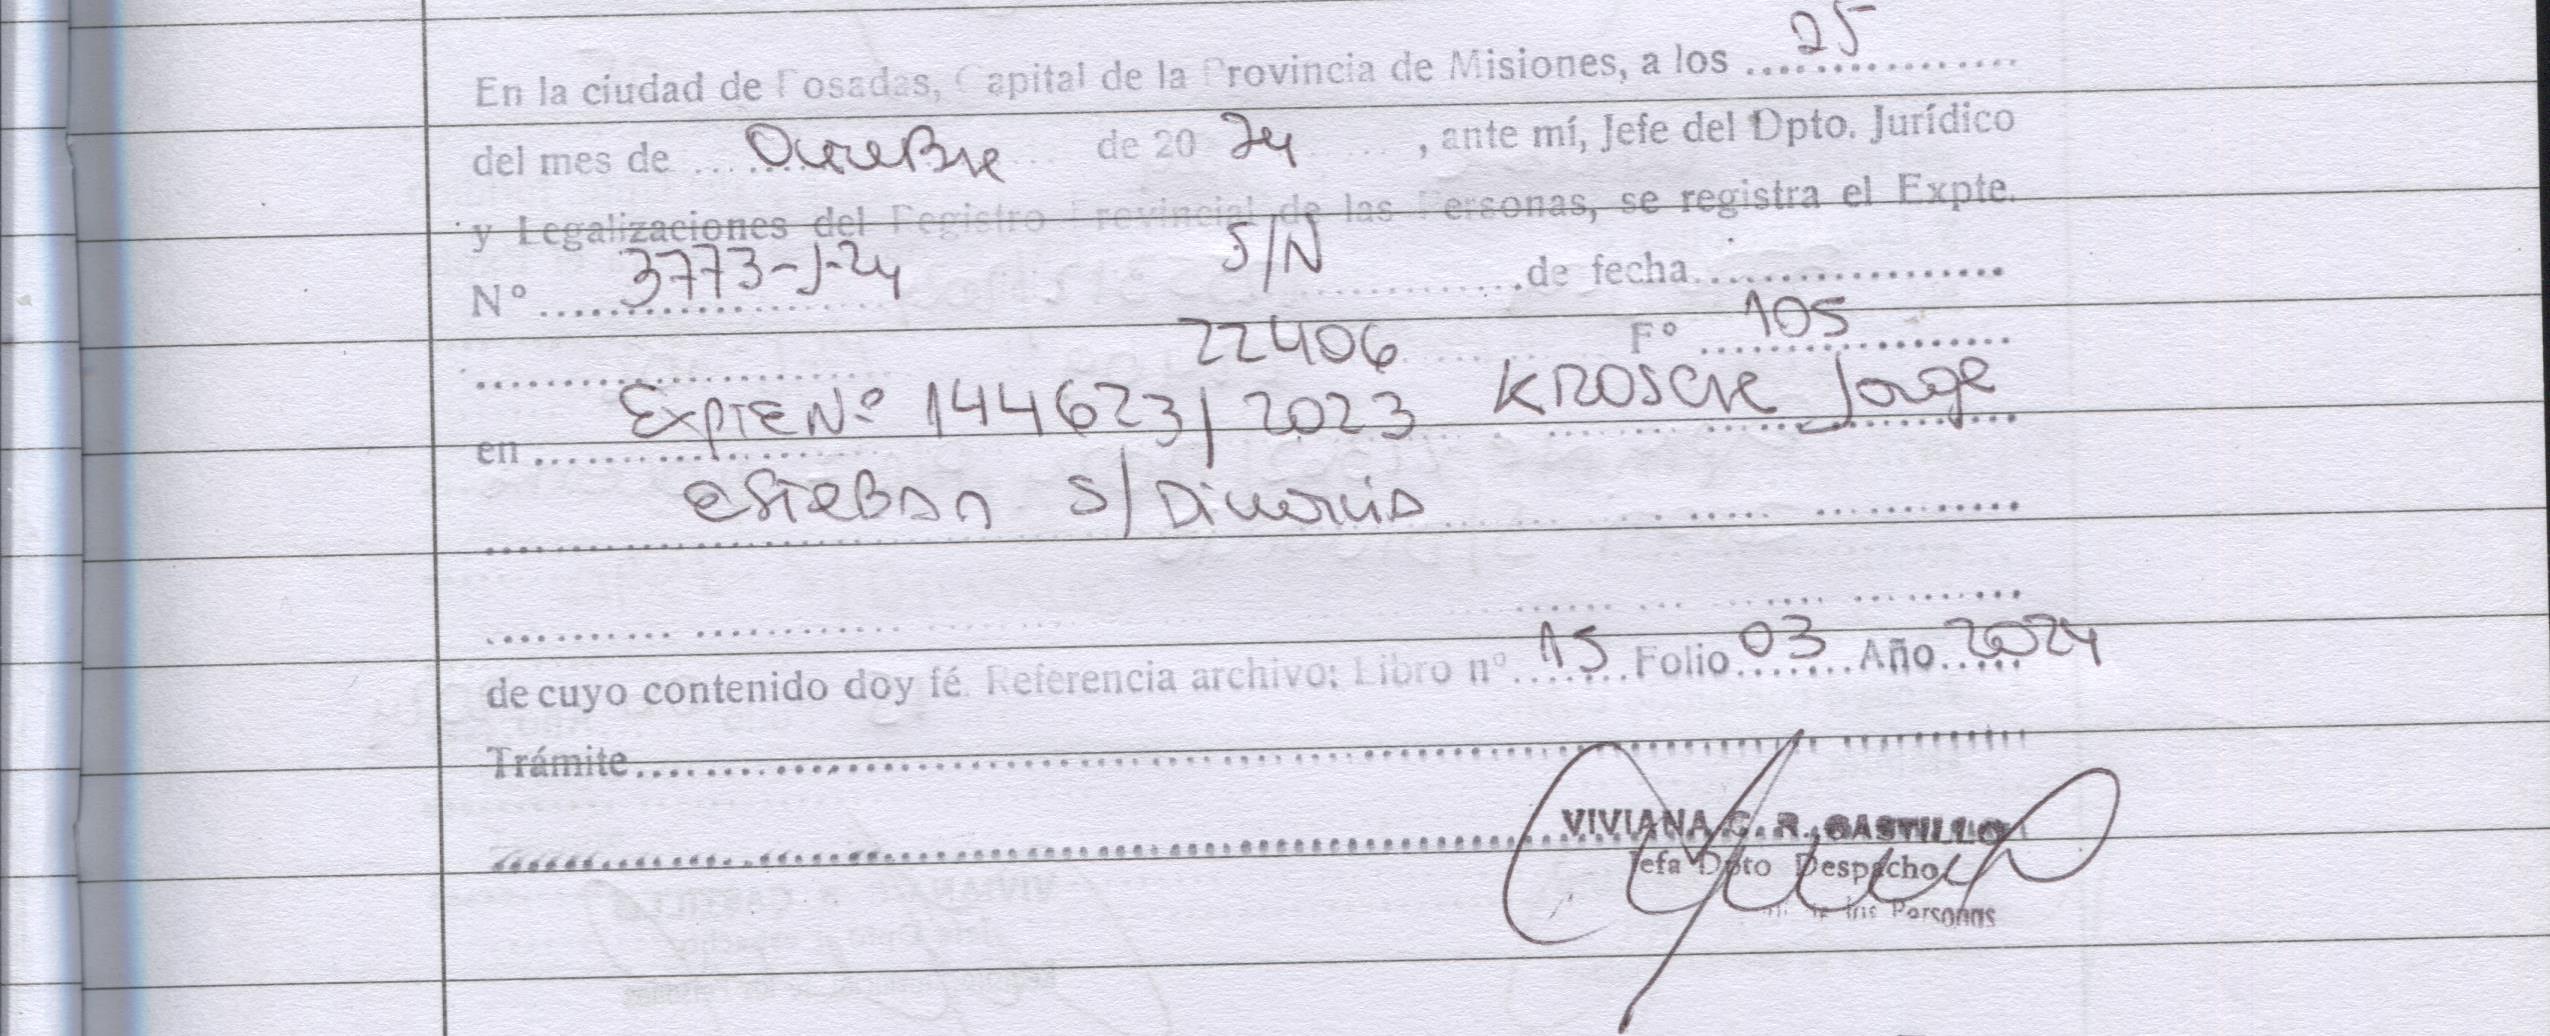 En la ciudad de Posadas, Capital de la Provincia de Misiones, a los 25
del mes de Octubre de 20 24, ante mí, Jefe del Dpto. Jurídico
y Legalizaciones del Registro Provincial de las Personas, se registra el Expte.
N° 3773-J-24 S/N de fecha
22406 F° 105
en Expte N° 144623/2023 Jorge
esteban s/ Divorcio
de cuyo contenido doy fé. Referencia archivo: Libro n° 15 Folio 03 Año 2024
Trámite
VIVIANA C. R. CASTILLO
Jefa Dpto Despacho
de las Personas